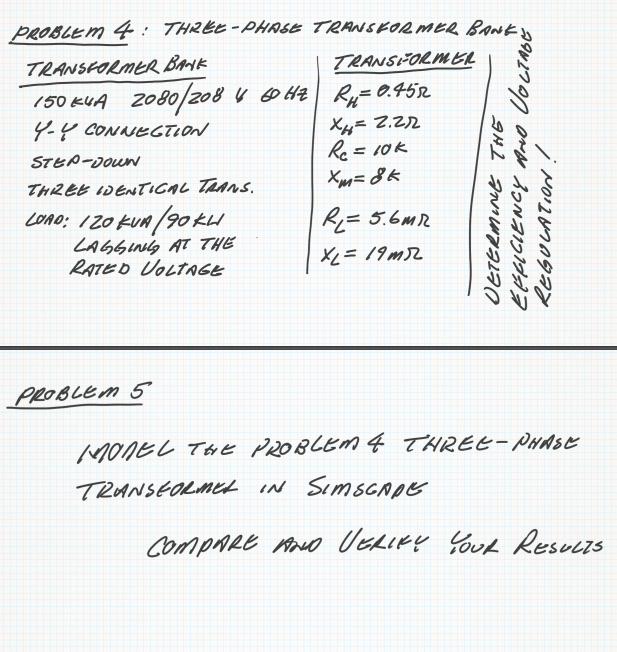 PROBLEM 4: THREE-PHASE TRANSFORMER BANK
TRANSFORMER BANK
150 KVA 2080/208 V 60 HZ
Y-Y CONNECTION
STEP-DOWN
THREE IDENTICAL TRANS.
LOAD: 120 KVA/90 KW
LAGGING AT THE
RATED VOLTAGE
TRANSFORMER
RH = 0.45Ω
XH = 2.2Ω
RC = 10K
Xm = 8K
RL = 5.6mΩ
XL = 19mΩ
DETERMINE THE
EFFICIENCY AND VOLTAGE
REGULATION!
PROBLEM 5
MODEL THE PROBLEM 4 THREE-PHASE
TRANSFORMER IN SIMSCAPE
COMPARE AND VERIFY YOUR RESULTS